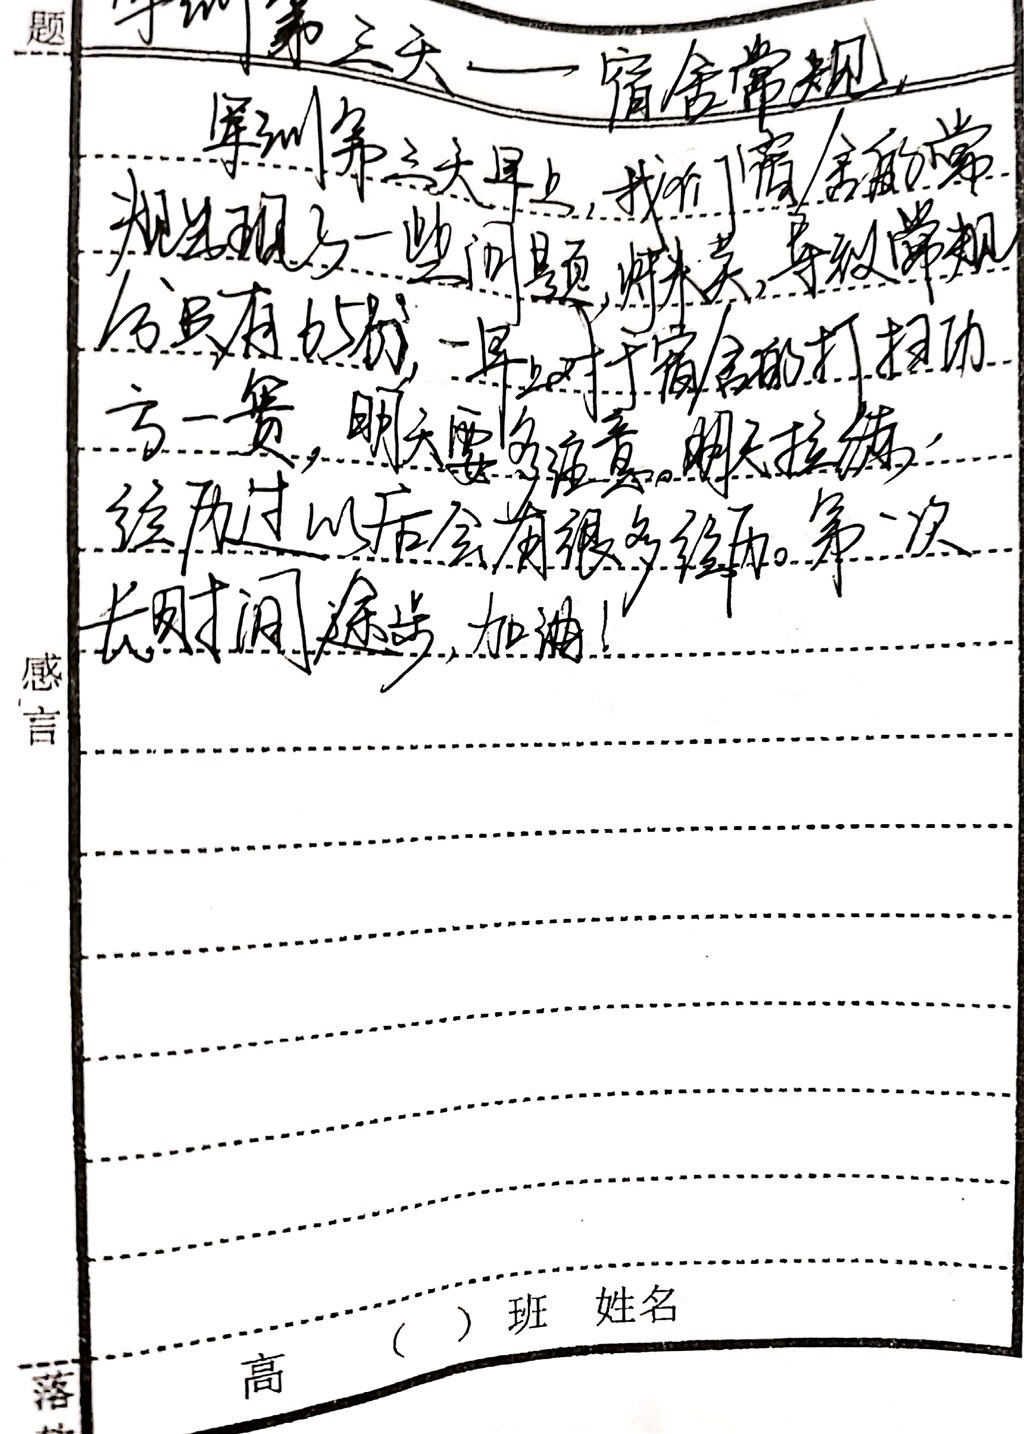 题
军训第三天——宿舍常规
军训第三天早上,我们宿舍的常
规出现了一些问题,时未关,导致常规
分只有65分,一早上对于宿舍的打扫功
亏一篑,明天要多注意。明天拉练,
经历过以后会有很多经历。第一次
长时间途步,加油!
感言
高 ( ) 班 姓名
落